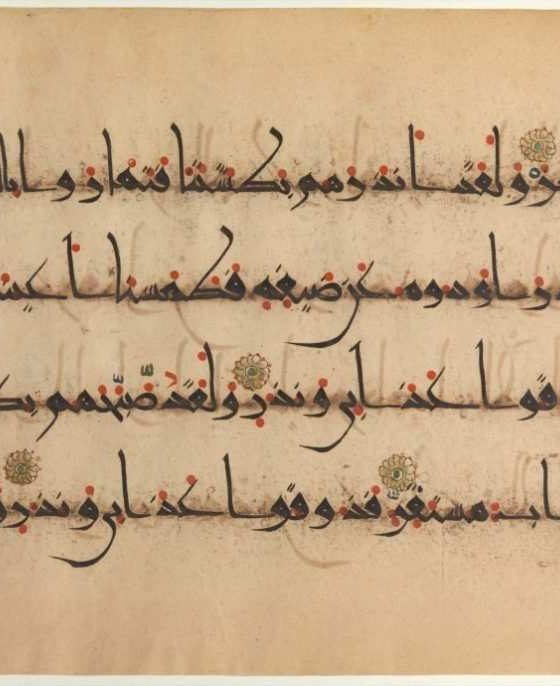 ر ولقد انذرهم بطشتنا فتماروا بال
د راودوه عن ضيفه فطمسنا اعين
قوا عذابي ونذر ولقد صبحهم بك
اب مستقر فذوقوا عذابي ونذر و